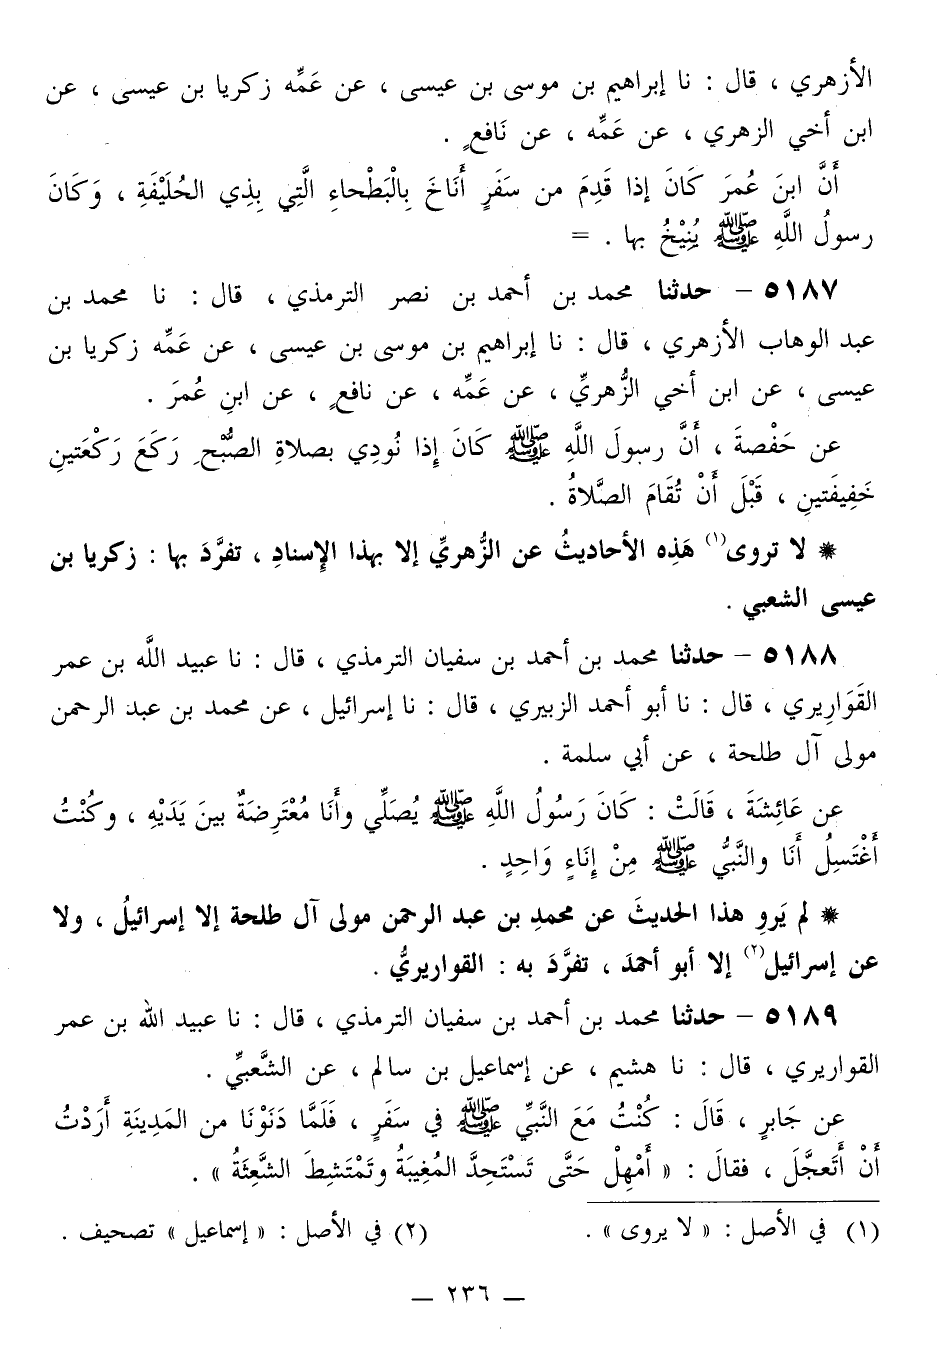 الأزهري ، قال : نا إبراهيم بن موسى بن عيسى ، عن عَمِّه زكريا بن عيسى ، عن
ابن أخي الزهري ، عن عَمِّه ، عن نَافعٍ .
أَنَّ ابنَ عُمرَ كَانَ إذا قَدِمَ من سَفَرٍ أَنَاخَ بِالْبَطْحاءِ الَّتِي بِذِي الحُلَيْفَةِ ، وَكَانَ
رسولُ اللَّهِ ﷺ يُنِيْخُ بها . =
٥١٨٧ – حدثنا محمد بن أحمد بن نصر الترمذي ، قال : نا محمد بن
عبد الوهاب الأزهري ، قال : نا إبراهيم بن موسى بن عيسى ، عن عَمِّه زكريا بن
عيسى ، عن ابن أخي الزُّهريِّ ، عن عَمِّه ، عن نافعٍ ، عن ابنِ عُمرَ .
عن حَفْصةَ ، أَنَّ رسولَ اللَّهِ ﷺ كَانَ إِذا نُودِي بصلاةِ الصُّبْحِ رَكَعَ رَكْعَتينِ
خَفِيفَتينِ ، قَبْلَ أَنْ تُقَامَ الصَّلاةُ .
* لا تروى(١) هَذِه الأحاديثُ عن الزُّهريِّ إلا بهذا الإِسنادِ ، تفرَّدَ بها : زكريا بن
عيسى الشعبي .
٥١٨٨ – حدثنا محمد بن أحمد بن سفيان الترمذي ، قال : نا عبيد اللَّه بن عمر
القَوَارِيري ، قال : نا أبو أحمد الزبيري ، قال : نا إسرائيل ، عن محمد بن عبد الرحمن
مولى آل طلحة ، عن أبي سلمة .
عن عَائِشَةَ ، قَالَتْ : كَانَ رَسُولُ اللَّهِ ﷺ يُصَلِّي وأَنَا مُعْتَرِضَةٌ بينَ يَدَيْهِ ، وكُنْتُ
أَغْتَسِلُ أَنَا والنَّبيُّ ﷺ مِنْ إِنَاءٍ وَاحِدٍ .
* لم يَروِ هذا الحديثَ عن محمدِ بن عبد الرحمن مولى آل طلحة إلا إسرائيلُ ، ولا
عن إسرائيل(٢) إلا أبو أحمدَ ، تفرَّدَ به : القواريريُّ .
٥١٨٩ – حدثنا محمد بن أحمد بن سفيان الترمذي ، قال : نا عبيد الله بن عمر
القواريري ، قال : نا هشيم ، عن إسماعيل بن سالم ، عن الشَّعبيِّ .
عن جَابرٍ ، قَالَ : كُنْتُ مَعَ النَّبيِّ ﷺ في سَفَرٍ ، فَلَمَّا دَنَوْنَا من المَدِينَةِ أَرَدْتُ
أَنْ أَتَعجَّلَ ، فقالَ : « أَمْهِلْ حَتَّى تَسْتَحِدَّ المُغِيبَةُ وتَمْتَشِطَ الشَّعِثَةُ » .
(١) في الأصل : « لا يروى » .
(٢) في الأصل : « إسماعيل » تصحيف .
— ٢٣٦ —